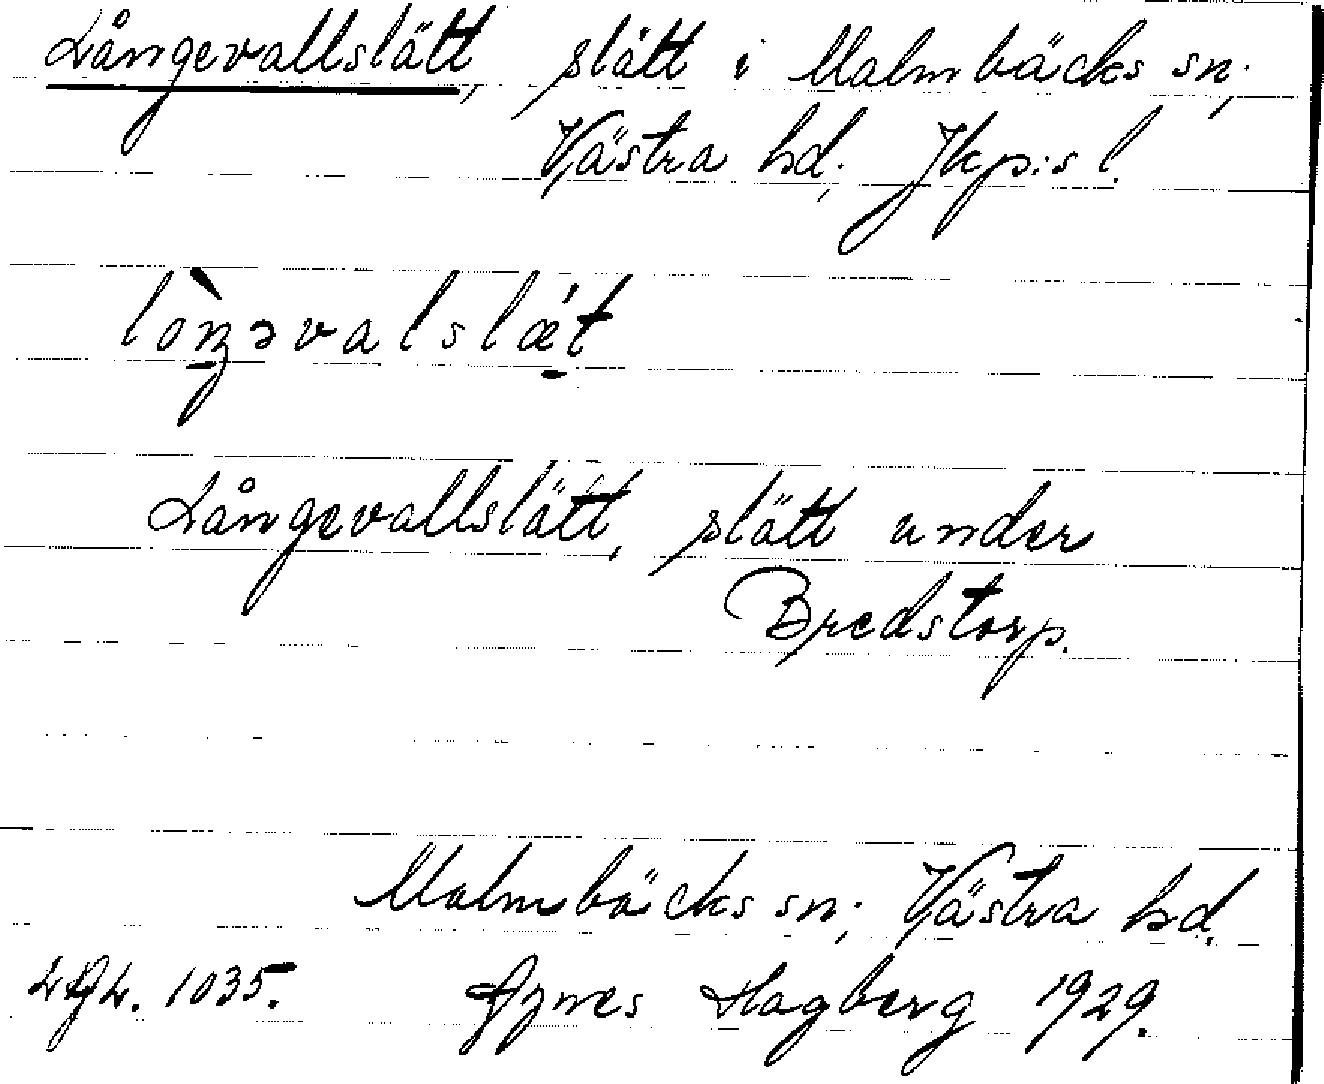 Långevallslätt, slått i Malmbäcks sn;
Västra hd; Jkp:s l.
Långevallslätt, slätt under
Bredstorp.
Malmbäcks sn; Västra hd.
1035. Agnes Hagberg 1929.